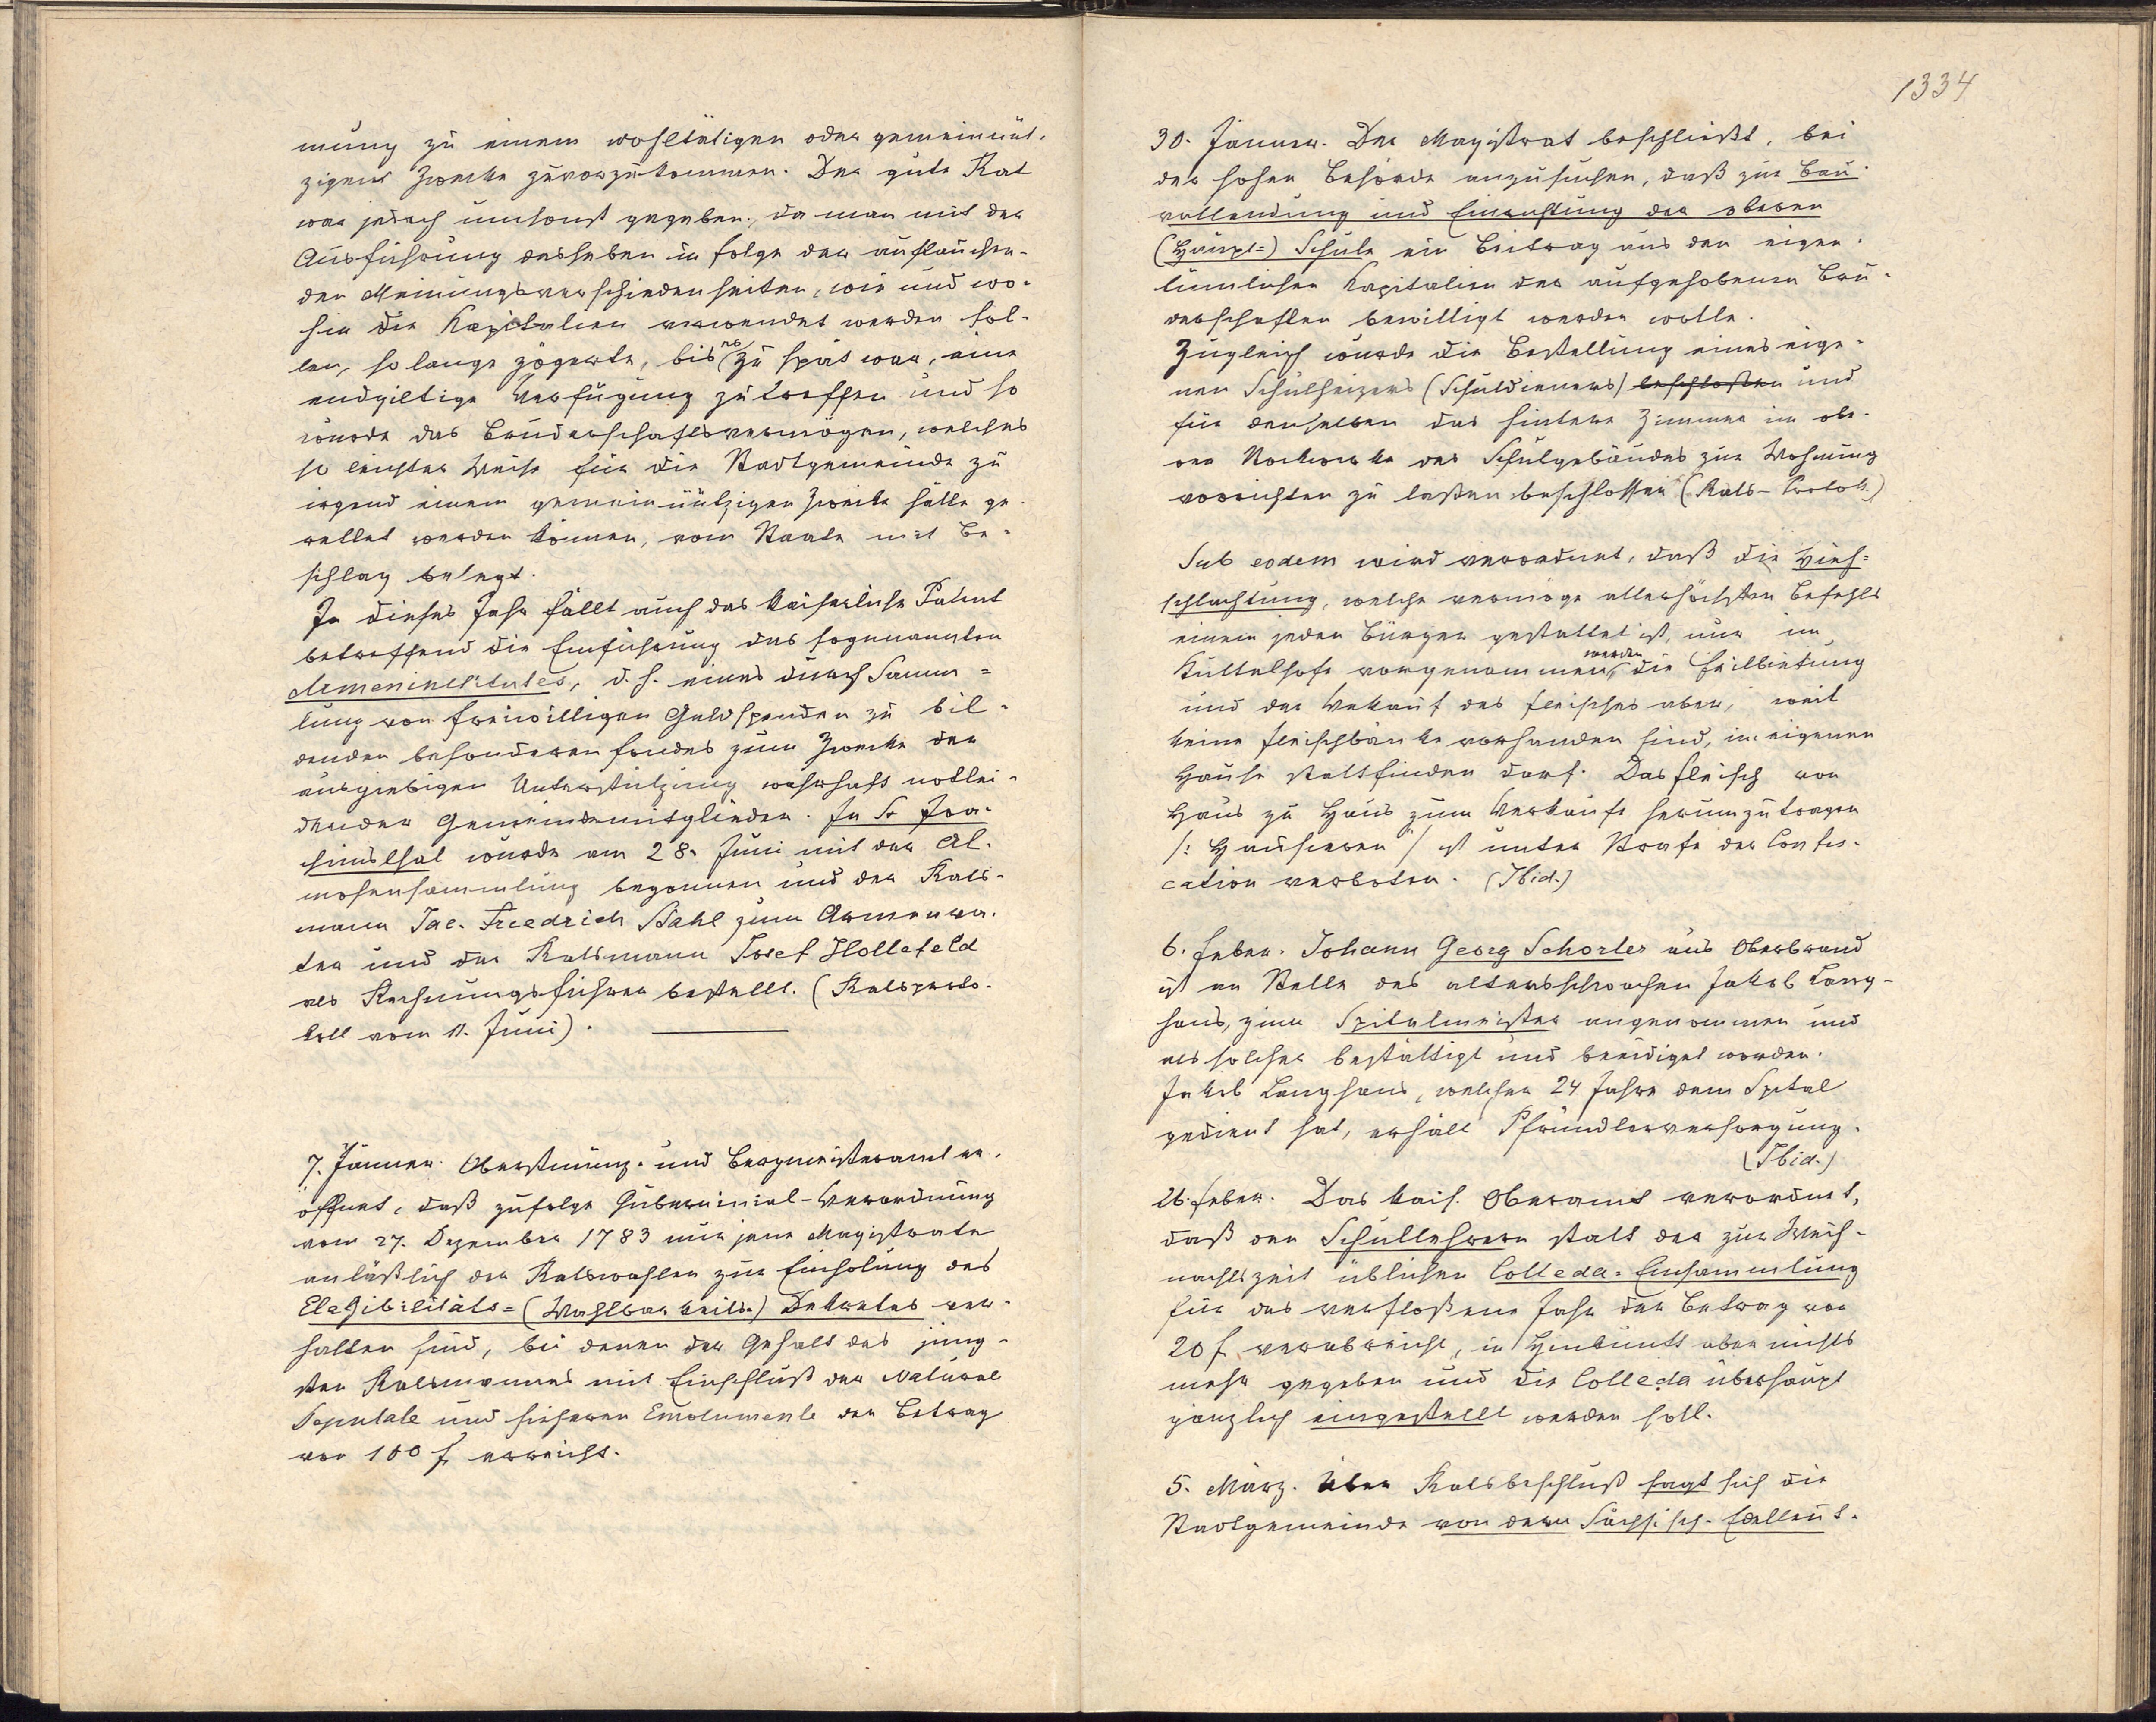 mung zu einem wohltätigen oder gemeinnüt-
zigen Zwecke zuvorzukommen. Der gute Rat
war jedoch umsonst gegeben, da man mit der
Ausführung desselben in folge der auftauchen-
den Meinungsverschiedenheiten, wie und wo-
hin die Kapitalien verwendet werden sol-
len, so lange zögerte, bis es zu spät war, eine
endgiltige Verfügung zu treffen und so
wurde das Bruderschaftsvermögen, welches
so leichter Weise für die Stadtgemeinde zu
irgend einem gemeinnützigen Zwecke hätte ge-
rettet werden können, vom Staate mit Be-
schlag belegt.
In dieses Jahr fällt auch das kaiserliche Patent
betreffend die Einführung des sogenannten
Armeninstitutes, d. h. eines durch Samm=
lung von freiwilligen Geldspenden zu bil-
denden besonderen Fondes zum Zwecke der
ausgiebigen Unterstützung wahrhaft notlei-
dender Gemeindemitglieder. In St Joa-
chimsthal wurde am 28. Juni mit der Al-
mosensammlung begonnen und der Rats-
mann Jac. Friedrich Stahl zum Armenva-
ter und der Ratsmann Josef Hollefeld
als Rechnungsführer bestellt. (Ratsproto-
koll vom 11. Juni).
7. Jänner. Oberstmünz- und Bergmeisteramt er-
öffnet, daß zufolge Gubernial-Verordnung
vom 27. Dezember 1783 nur jene Magistrate
anläßlich der Ratswahlen zur Einholung des
Elegibilitäts=(Wahlbarkeits-) Dekretes ver-
halten sind, bei denen der Gehalt des jüng-
sten Ratsmannes mit Einschluß der Natural
Deputate und sicheren Emolumente den Betrag
von 100 f erreicht.
1334
30. Jänner. Der Magistrat beschließt, bei
der hohen Behörde anzusuchen, daß zur Bau-
vollendung und Einrichtung der oberen
(Haupt=) Schule ein Beitrag aus den eigen-
tümlichen Kapitalien der aufgehobenen Bru-
derschaften bewilligt werden wolle.
Zugleich wurde die Bestellung eines eige-
nen Schulheizers (Schuldieners) beschloßen und
für denselben das hintere Zimmer im obe-
ren Stockwerke des Schulgebäudes zur Wohnung
vorrichten zu laßen beschlossen (Rats-Protok.)
Sub eodem wird verordnet, daß die Vieh=
schlachtung, welche vermöge allerhöchsten Befehls
einem jeden Bürger gestattet ist, nur im
Kuttelhofe vorgenommen werden, die Feilbietung
und der Verkauf des Fleisches aber, weil
keine Fleischbänke vorhanden sind, im eigenen
Hause stattfinden darf. Das Fleisch von
Haus zu Haus zum Verkaufe herumzutragen
/: Hausieren / ist unter Strafe der Confis-
cation verboten. (Ibid.)
6. Feber. Johann Georg Schorler aus Oberbrand
ist an Stelle des altersschwachen Jakob Lang-
hans, zum Spitalmeister angenommen und
als solcher bestättigt und beeidiget worden.
Jakob Langhans, welcher 24 Jahre dem Spital
gedient hat, erhält Pfründlerversorgung.
(Ibid.)
26. Feber. Das kais. Oberamt verordnet,
daß den Schullehrern statt der zur Weih-
nachtszeit üblichen Colleda-Einsammlung
für das verfloßene Jahr der Betrag von
20 f verabreicht, in Hinkunft aber nichts
mehr gegeben und die Colleda überhaupt
gänzlich eingestellt werden soll.
5. März. Über Ratsbeschluß sagt sich die
Stadtgemeinde von dem Sächsisch-Edelleut-